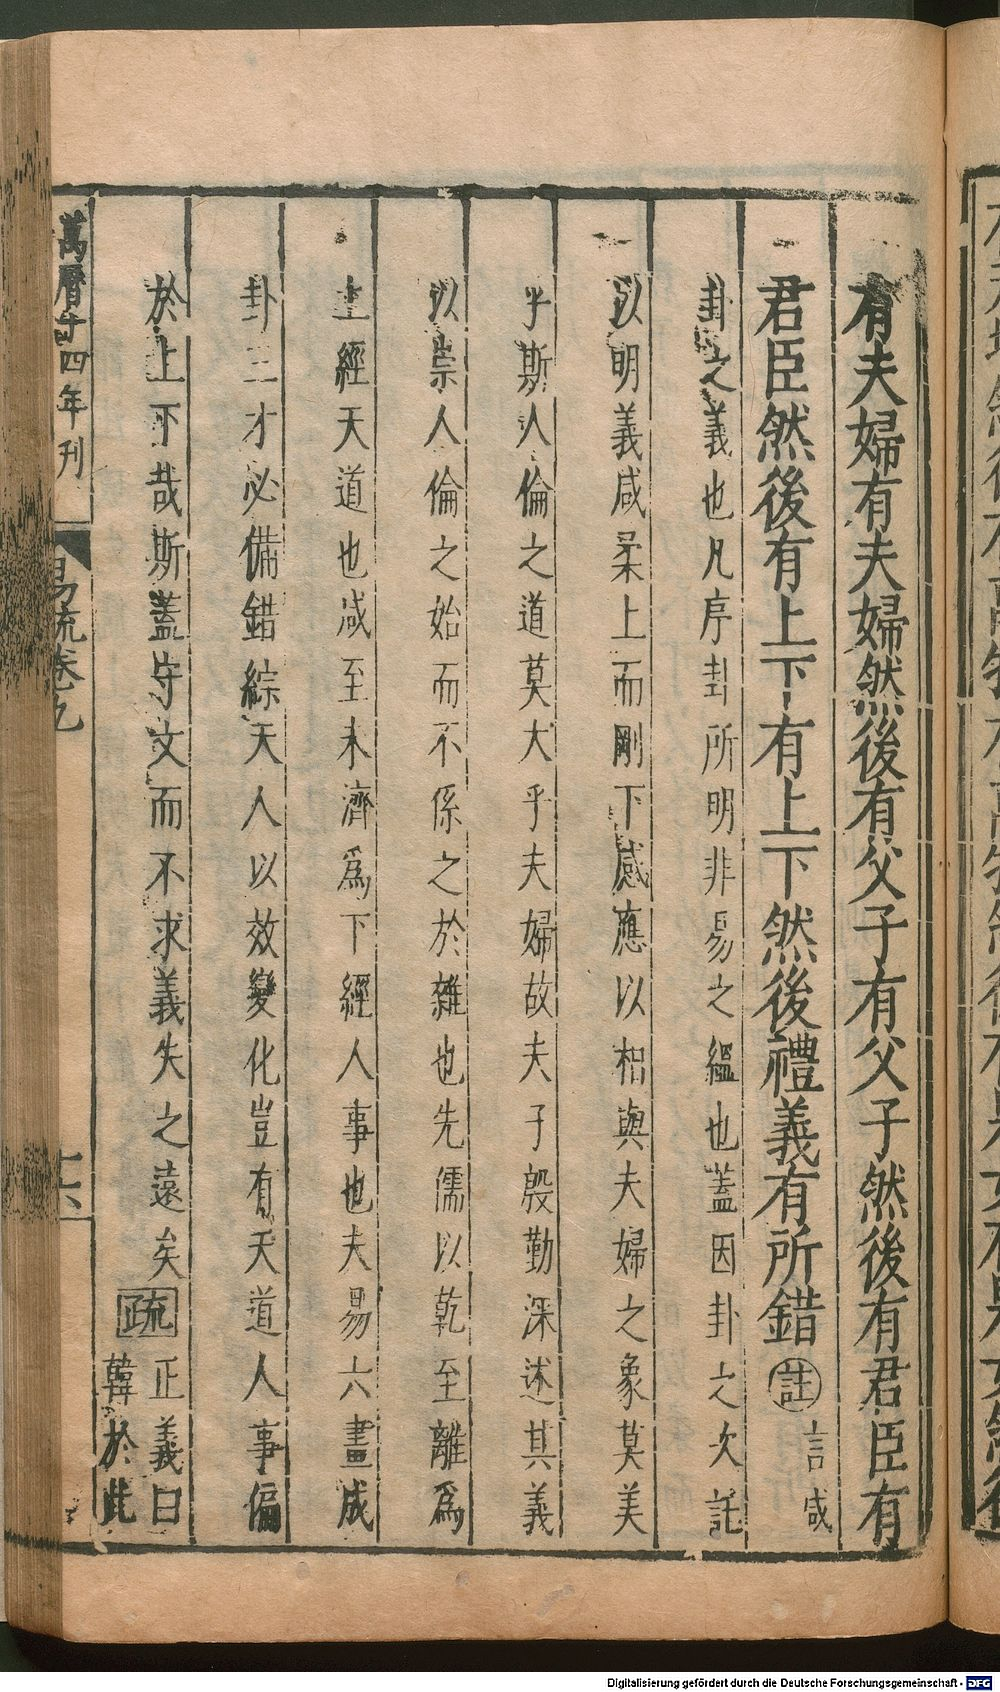 有夫婦有夫婦然後有父子有父子然後有君臣有
君臣然後有上下有上下然後禮義有所錯註言咸
卦之義也凡序卦所明非易之縕也蓋因卦之次託
以明義咸柔上而剛下感應以相與夫婦之象莫美
乎斯人倫之道莫大乎夫婦故夫子殷勤深述其義
以崇人倫之始而不係之於雜也先儒以乾至離爲
上經天道也咸至未濟爲下經人事也夫易六畫成
卦三才必備錯綜天人以效變化豈有天道人事偏
於上下哉斯蓋守文而不求義失之遠矣疏正義曰
韓於此
萬曆十四年刊
易疏卷九
Digitalisierung gefördert durch die Deutsche Forschungsgemeinschaft - DFG